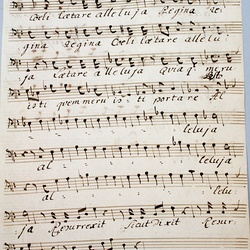 Coeli laetare alleluja Regina Coe
Regina Coeli laetare allelu
ja laetare alleluja Quia meru
isti quem meru is ti portare Al
leluja
al leluja
al lelu
ja Resurrexit Sicut Dixit Resur